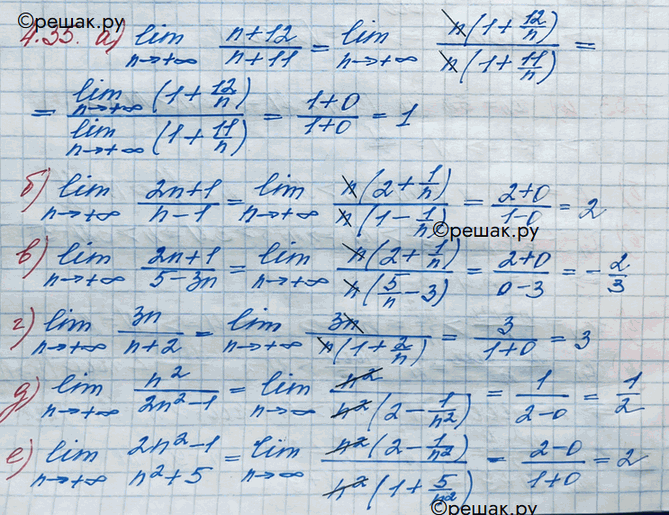 ©reшак.ру
4.35. а) lim n→+∞ (n+12)/(n+11) = lim n→+∞ n(1+12/n)/n(1+11/n) =
= lim n→+∞ (1+12/n) / lim n→+∞ (1+11/n) = (1+0)/(1+0) = 1
б) lim n→+∞ (2n+1)/(n-1) = lim n→+∞ n(2+1/n)/n(1-1/n) = (2+0)/(1-0) = 2
©reшак.ру
в) lim n→+∞ (2n+1)/(5-3n) = lim n→+∞ n(2+1/n)/n(5/n-3) = (2+0)/(0-3) = -2/3
г) lim n→+∞ 3n/(n+2) = lim n→+∞ 3n/n(1+2/n) = 3/(1+0) = 3
д) lim n→+∞ n²/(2n²-1) = lim n→∞ n²/n²(2-1/n²) = 1/(2-0) = 1/2
е) lim n→+∞ (2n²-1)/(n²+5) = lim n→∞ n²(2-1/n²)/n²(1+5/n²) = (2-0)/(1+0) = 2
©reшак.ру